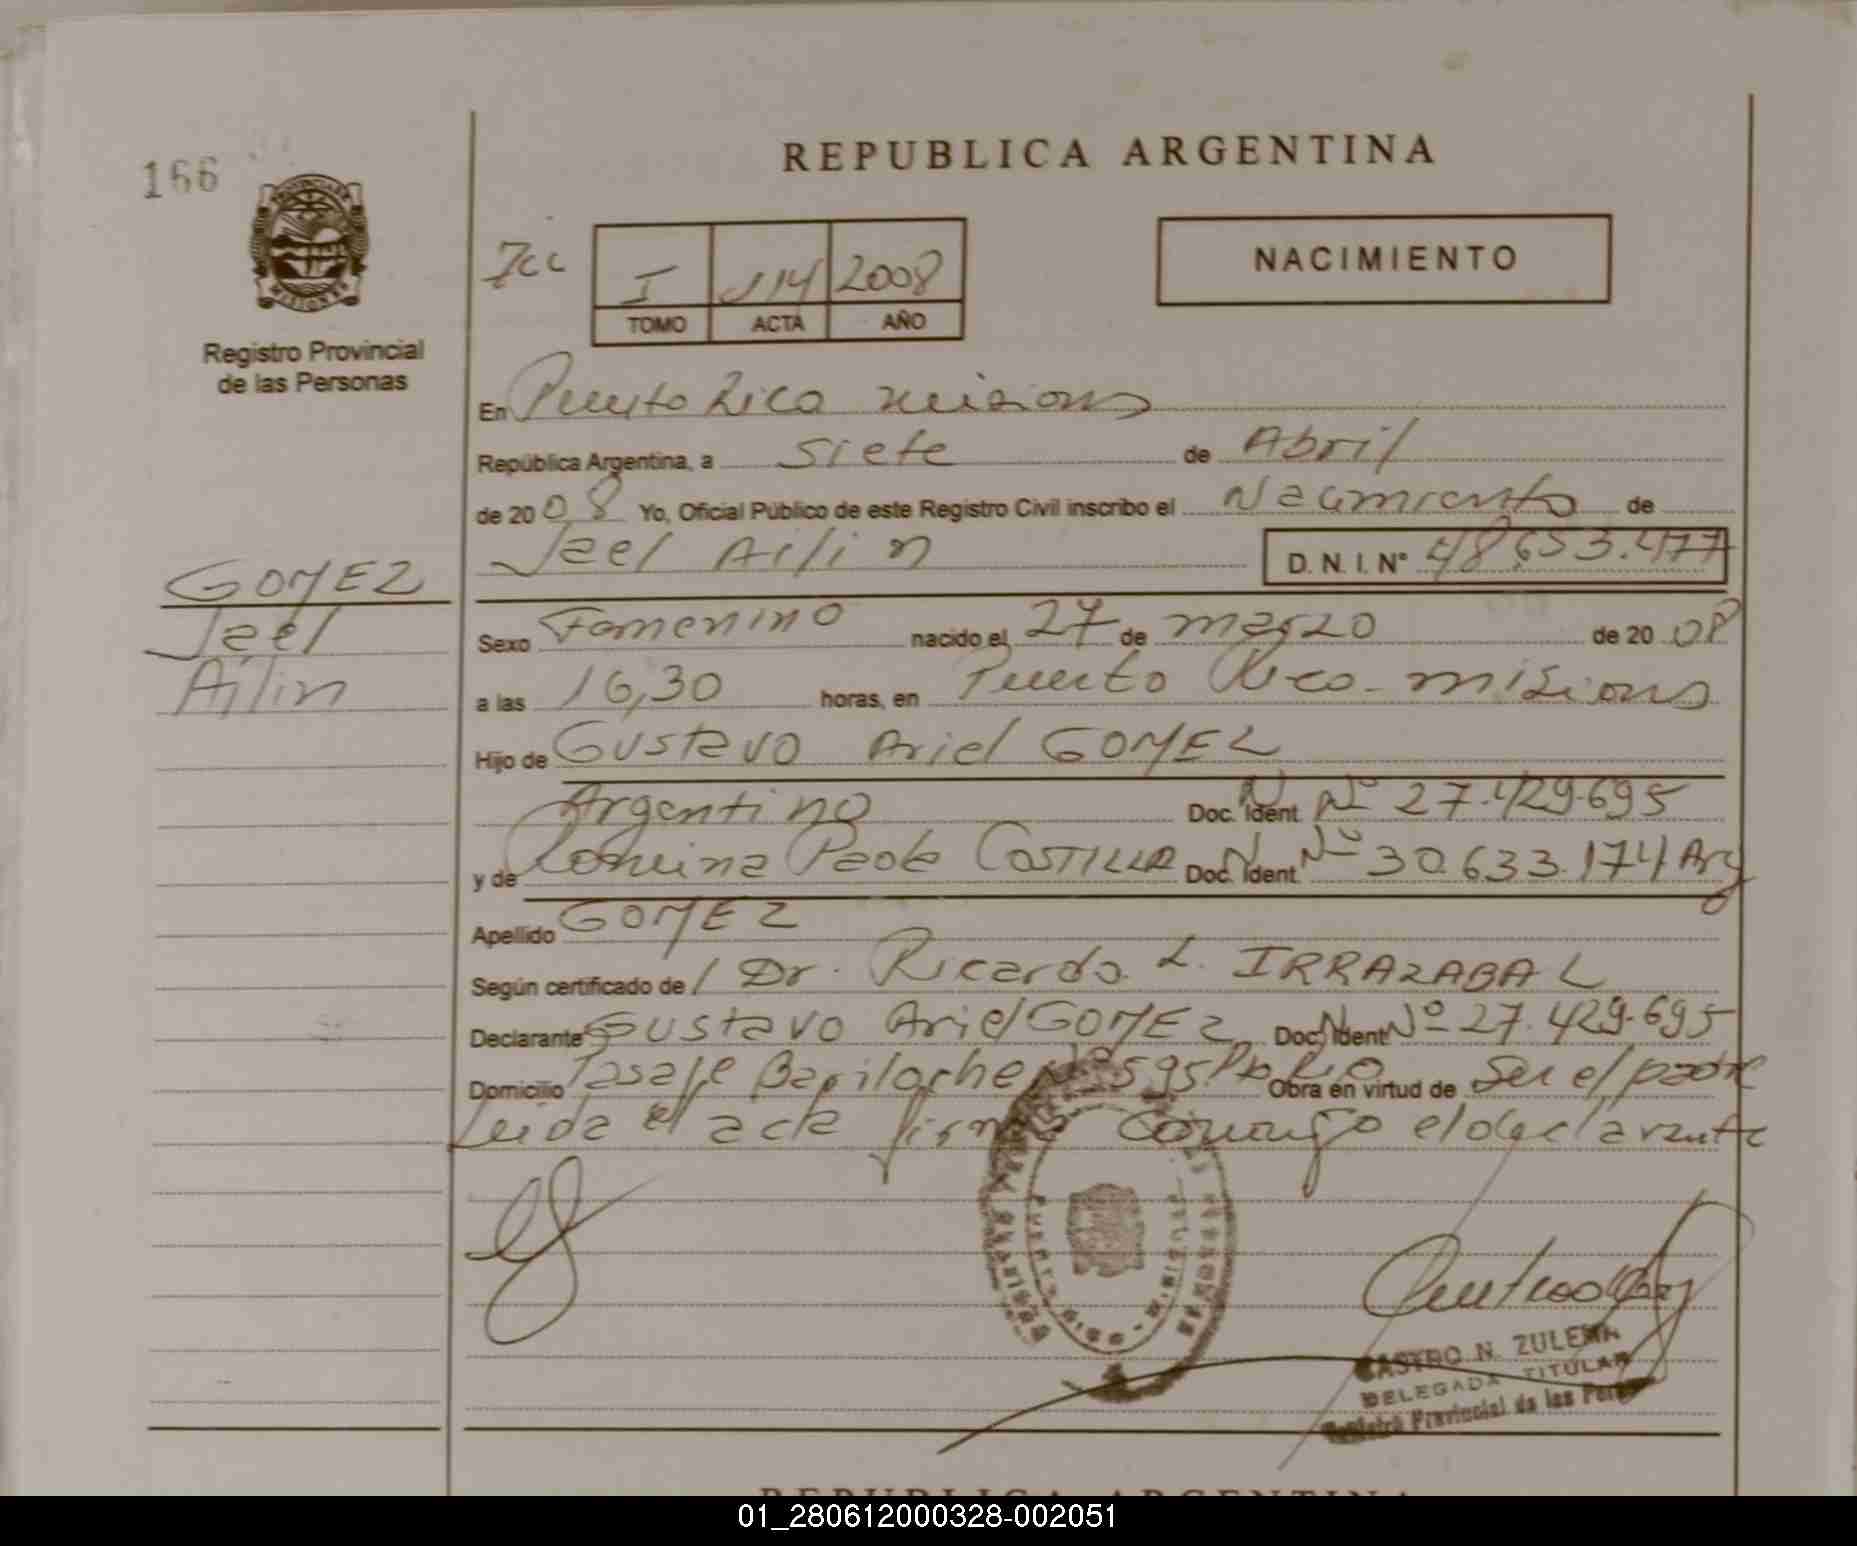 166
REPUBLICA ARGENTINA
NACIMIENTO
I 114 2008
TOMO ACTA AÑO
Registro Provincial
de las Personas
En Puerto Rico misiones
República Argentina, a siete de Abril
de 2008 Yo, Oficial Público de este Registro Civil inscribo el Nacimiento de
Jael Ailin D. N. I. N° 48.653.477
GOMEZ
Jael
Ailin
Sexo Femenino nacido el 27 de marzo de 2008
a las 16,30 horas, en Puerto Rico - misiones
Hijo de Gustavo Ariel GOMEZ
Argentino Doc. Ident. N° 27.429.695
y de Romina Paola COSTILLA Doc. Ident. N° 30.633.174 Arg
Apellido GOMEZ
Según certificado de Dr. Ricardo L. IRRAZABAL
Declarante Gustavo Ariel GOMEZ Doc. Ident N° 27.429.695
Domicilio Pasaje Bariloche N° 595 Pto Rico Obra en virtud de Ser el padre
Leida el acta firma conmigo el declarante
CASTRO N. ZULEMA
DELEGADA TITULAR
Registro Provincial de las Per
REPUBLICA ARGENTINA
01_280612000328-002051